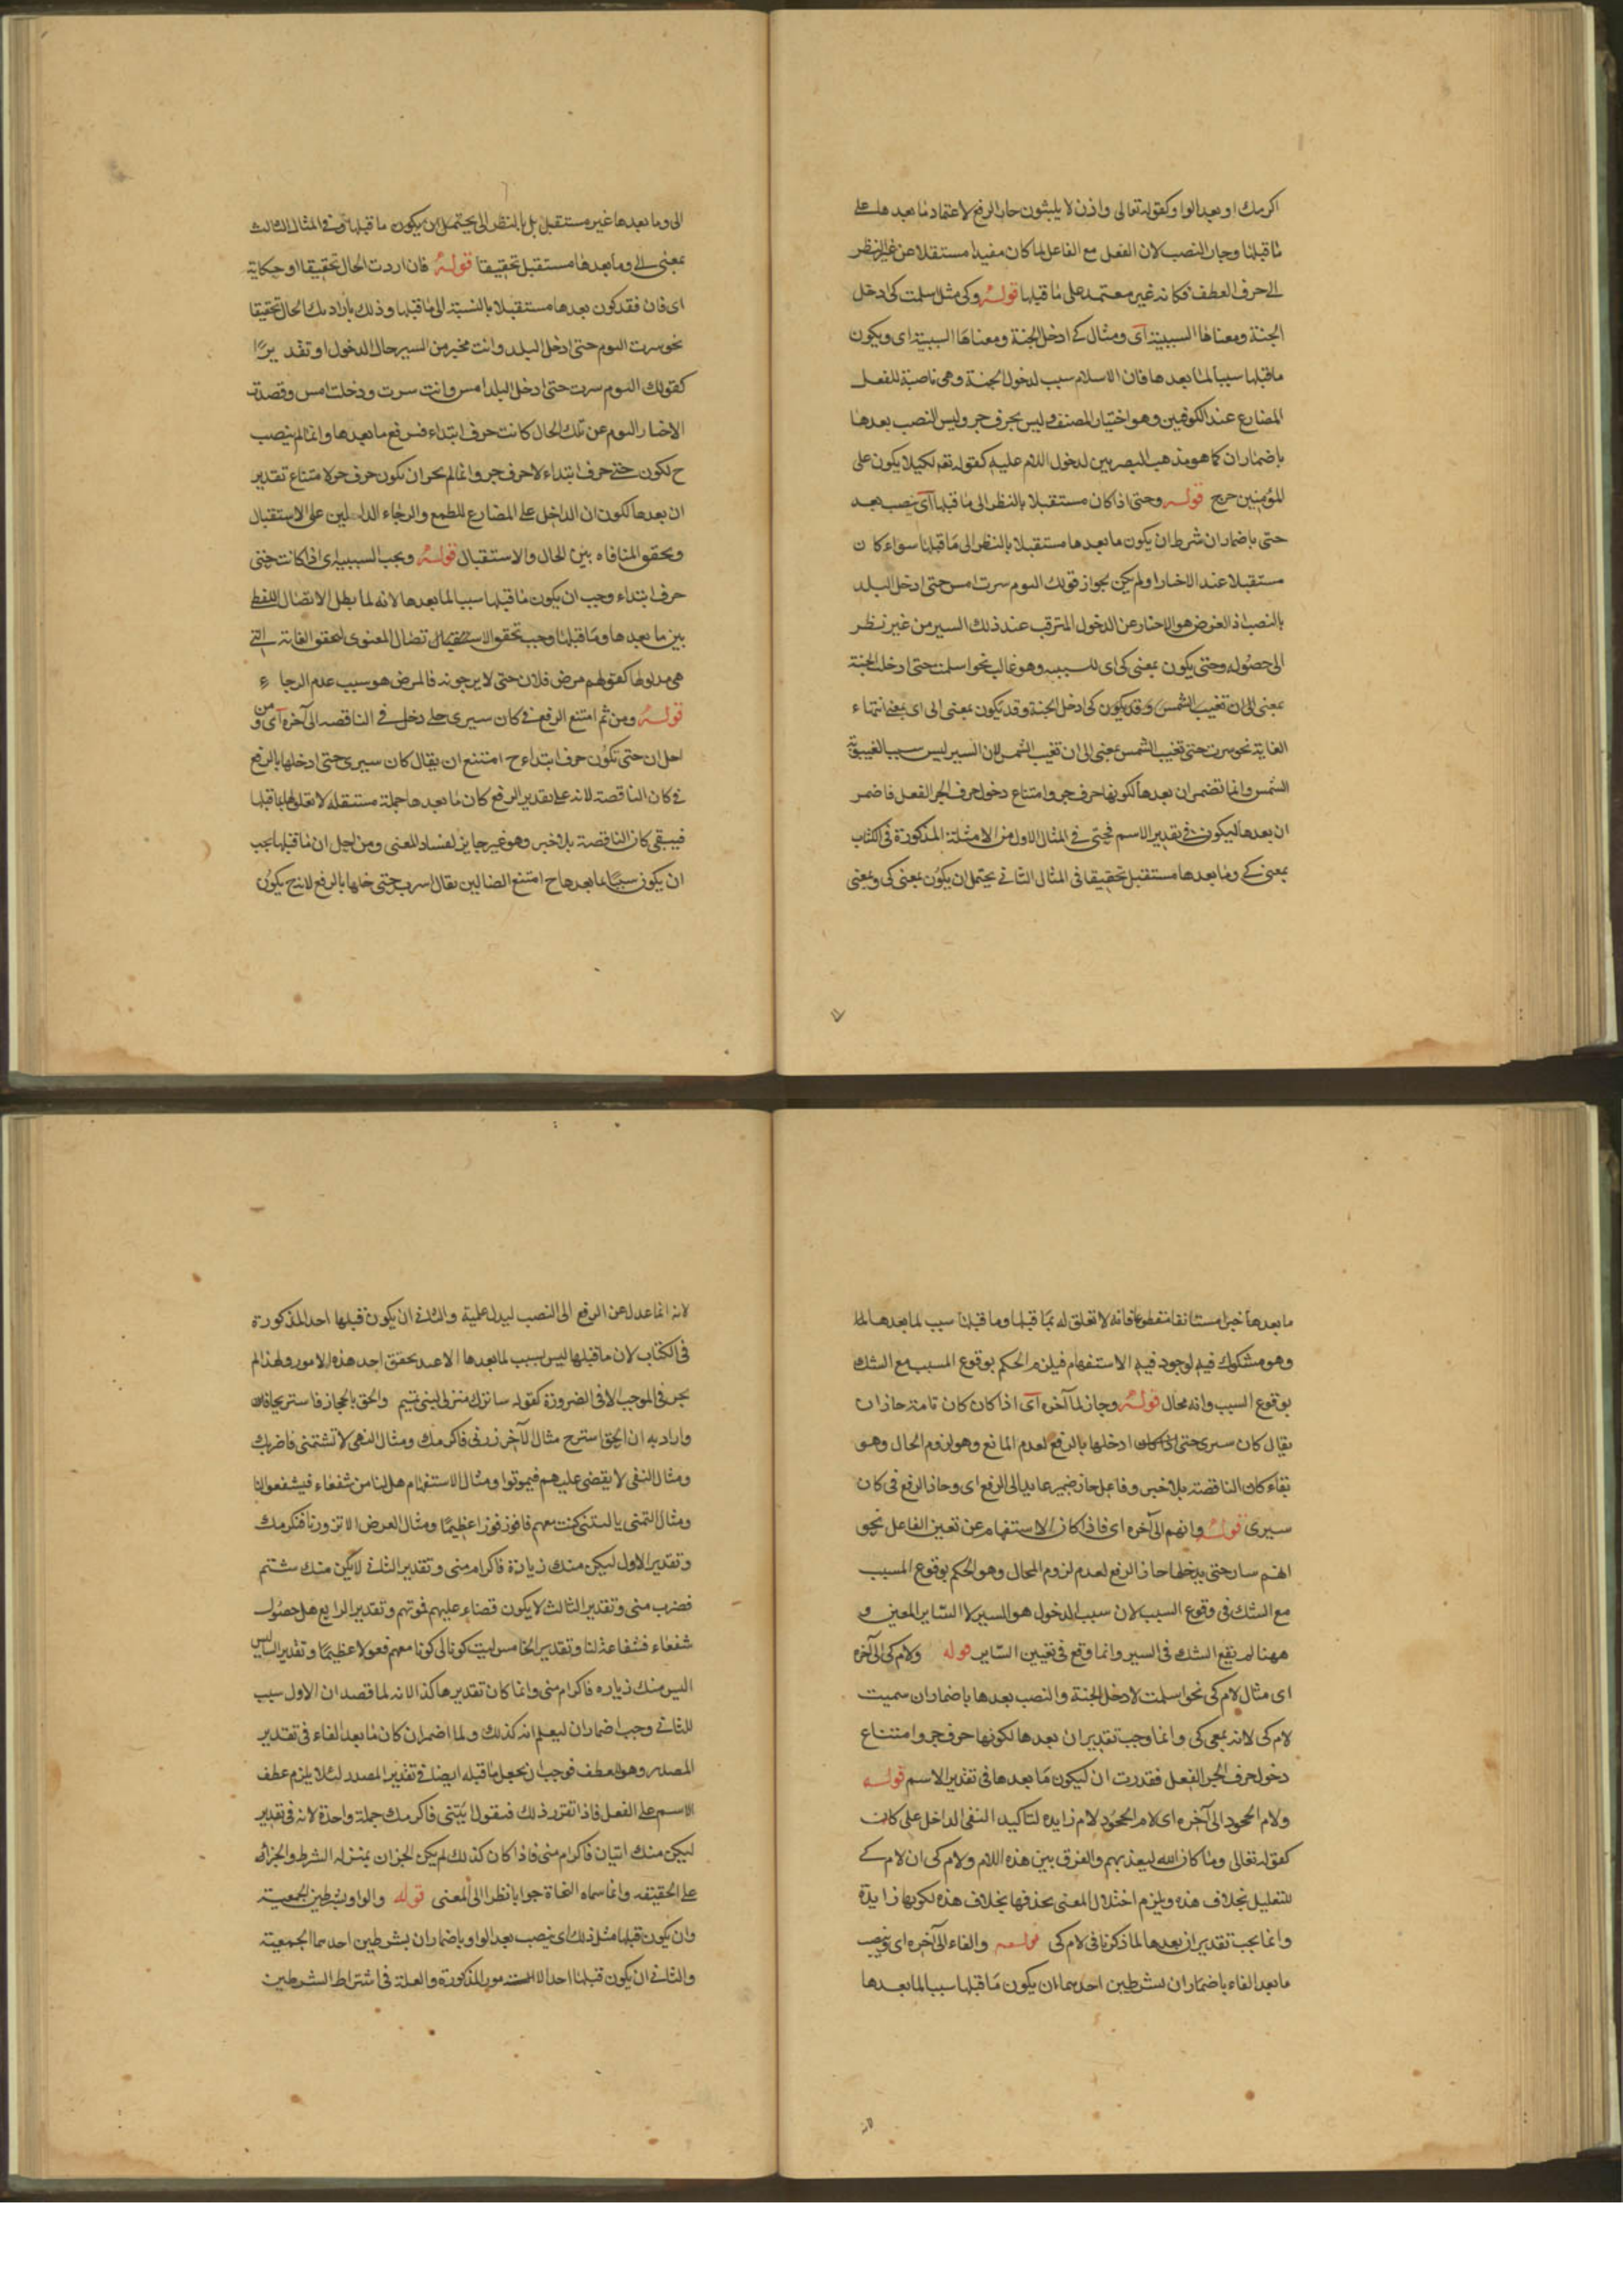 اكرمك او بعد الواو كقوله تعالى واذن لا يلبثون جاز الرفع لاعتماد ما بعدها على
ما قبلها وجاز النصب لان الفعل مع الفاعل لما كان مفيدا مستقلا من غير النظر
الى حرف العطف فكانه غير معتمد على ما قبلها قوله وكى مثل اسلمت كى ادخل
الجنة ومعناها السببية اى ومثال كى ادخل الجنة ومعناها السببية اى ويكون
ما قبلها سببا لما بعدها فان الاسلام سبب لدخول الجنة وهى ناصبة للفعل
المضارع عند الكوفيين وهو اختيار المصنف وليس بحرف جر وليس النصب بعدها
باضمار ان كما هو مذهب البصريين لدخول اللام عليه كقوله تعم لكيلا يكون على
المؤمنين حرج قوله وحتى اذا كان مستقبلا بالنظر الى ما قبلها اى ينصب بعد
حتى باضمار ان شرط ان يكون ما بعدها مستقبلا بالنظر الى ما قبلها سواء كان
مستقبلا عند الاخبار او لم يكن لجواز قولك اليوم سرت امس حتى ادخل البلد
بالنصب اذ الغرض هو الاخبار عن الدخول المترقب عند ذلك السير من غير نظر
الى حصوله وحتى يكون بمعنى كى اى للسببيه وهو غالب نحو اسلمت حتى ادخل الجنة
بمعنى الى ان تغيب الشمس وقد يكون كى ادخل الجنة وقد يكون بمعنى الى اى بمعنى انتهاء
الغاية نحو سرت حتى تغيب الشمس بمعنى الى ان تغيب الشمس لان السير ليس سببا لغيبوبة
الشمس وانما تضمر ان بعدها لكونها حرف جر وامتناع دخول حرف الجر الفعل فاضمر
ان بعدها ليكون فى تقدير الاسم فحتى فى المثال الاول من الامثلة المذكورة فى الكتاب
بمعنى كى وما بعدها مستقبل تحقيقا فى المثال الثانى يحتمل ان يكون بمعنى كى وبمعنى
الى وما بعدها غير مستقبل بل بالنظر الى يحتمل ان يكون ما قبلها وفى المثال الثالث
بمعنى الى وما بعدها مستقبل تحقيقا قوله فان اردت الحال تحقيقا او حكاية
اى فان فقد كون بعدها مستقبلا بالنسبة الى ما قبلها وذلك بارادتك الحال تحقيقا
نحو سرت اليوم حتى ادخل البلد وانت مخبر من السير حال الدخول او تقديرًا
كقولك اليوم سرت حتى ادخل البلد امس وانت سرت ودخلت امس وقصدت
الاخبار اليوم عن تلك الحال كانت حرف ابتداء فيرفع ما بعدها وانما لم ينصب
ح لكون حتى حرف ابتداء لا حرف جر وانما لم يجز ان تكون حرف جر لامتناع تقدير
ان بعدها لكون ان الداخل على المضارع للطمع والرجاء الدالين على الاستقبال
وتحقق المنافاه بين الحال والاستقبال قوله ويجب السببيه اى اذا كانت حتى
حرف ابتداء وجب ان يكون ما قبلها سببا لما بعدها لانه لما بطل الاتصال اللفظى
بين ما بعدها وما قبلها وجب تحقق الاتصال المعنوى لتحقق الغاية التى
هى مدلولها كقولهم مرض فلان حتى لا يرجونه فالمرض هو سبب عدم الرجاء
قوله ومن ثم امتنع الرفع فى كان سيرى حتى ادخل فى الناقصه الى آخره اى ومن
اجل ان حتى تكون حرف ابتداء ح امتنع ان يقال كان سيرى حتى ادخلها بالرفع
فى كان الناقصة لانه على تقدير الرفع كان ما بعدها جملة مستقله لا تعلق لها بما قبلها
فيبقى كان الناقصة بلا خبر وهو غير جايز لفساد المعنى ومن اجل ان ما قبلها يجب
ان يكون سببًا لما بعدها ح امتنع يقال اسرت حتى تدخلها بالرفع لان ح يكون
ما بعدها خبرا مستانفا مقطوعا فانه لا تعلق له بما قبلها وما قبلها سبب لما بعدها
وهو مشكوك فيه لوجود فيه الاستفهام فيلزم الحكم بوقوع المسبب مع الشك
بوقوع السبب وانه محال قوله وجاز الى آخره اى اذا كان كان تامة جاز ان
يقال كان سيرى حتى ادخلها بالرفع لعدم المانع وهو لزوم الحال وهو
بقاء كان الناقصة بلا خبر وفاعل جاز ضمير عايد الى الرفع اى وجاز الرفع فى كان
سيرى قوله وايهم الى آخره اى فاذا كان الاستفهام عن تعين الفاعل نحو
ايهم سار حتى يدخلها جاز الرفع لعدم لزوم المحال وهو الحكم بوقوع المسبب
مع الشك فى وقوع السبب لان سبب الدخول هو السير لا السّاير المعين و
ههنا لم يقع الشك فى السير وانما وقع فى تعيين السّاير قوله ولام كى الى آخره
اى مثال لام كى نحو اسلمت لادخل الجنة والنصب بعدها باضمار ان سميت
لام كى لانه بمعى كى وانما وجب تقدير ان بعدها لكونها حرف جر وامتناع
دخول حرف الجر الفعل فقدرت ان ليكون ما بعدها فى تقدير الاسم قوله
ولام الجحود الى آخره اى لام الجحود لام زايده لتاكيد النفى الداخل على كان
كقوله تعالى وما كان الله ليعذبهم والفرق بين هذه اللام ولام كى ان لام كى
للتعليل بخلاف هذه ويلزم اختلال المعنى بحذفها بخلاف هذه لكونها زايدة
وانما يجب تقدير ان بعدها لما ذكرنا فى لام كى قوله والفاء الى آخره اى ينصب
ما بعد الفاء باضمار ان بشرطين احدهما ان يكون ما قبلها سببا لما بعدها
لانه انما عدل عن الرفع الى النصب ليدل علىة والثانى ان يكون قبلها احد المذكورة
فى الكتاب لان ما قبلها ليس بسبب لما بعدها الا عند تحقق احد هذه الامور ولهذا لم
يجز فى الموجب الا فى الضرورة كقوله ساترك منزلى لبنى تميم والحق بالحجاز فاستريحا فان
واراد به ان الحق استرح مثال الآخر زرنى فاكرمك ومثال النهى لا تشتمنى فاضربك
ومثال النفى لا يقضى عليهم فيموتوا ومثال الاستفهام هل لنا من شفعاء فيشفعوا لنا
ومثال التمنى يا ليتنى كنت معهم فافوز فوزا عظيمًا ومثال العرض الا تزورنا فنكرمك
وتقدير الاول ليكن منك زيارة فاكرام منى وتقدير الثانى لا يكن منك شتم
فضرب منى وتقدير الثالث لا يكون قضاء عليهم فموتهم وتقدير الرابع هل حصول
شفعاء فشفاعة لنا وتقدير الخامس ليت كونا لى كونا معهم عظيمًا وتقدير السادس
اليس منك زياره فاكرام منى وانما كان تقدير هكذا لانه لما قصد ان الاول سبب
للثانى وجب اضمار ان ليعلم انه كذلك ولما اضمر ان كان ما بعد الفاء فى تقدير
المصدر وهو العطف فوجب ان يجعل ما قبله ايضا فى تقدير المصدر لئلا يلزم عطف
الاسم على الفعل فاذا تقرر ذلك فنقول ايتنى فاكرمك جملة واحدة لانه فى تقدير
ليكن منك اتيان فاكرام منى فاذا كان كذلك لم يكن الجزان بمنزله الشرط والجزاء
على الحقيقه وانما سماه النحاة جوابا نظرا الى المعنى قوله والواو بشرطين الجمعية
وان يكون قبلها مثل ذلك اى ينصب بعد الواو باضمار ان بشرطين احدهما الجمعية
والثانى ان يكون قبلها احد الامور المذكورة والعلة فى اشتراط الشرطين